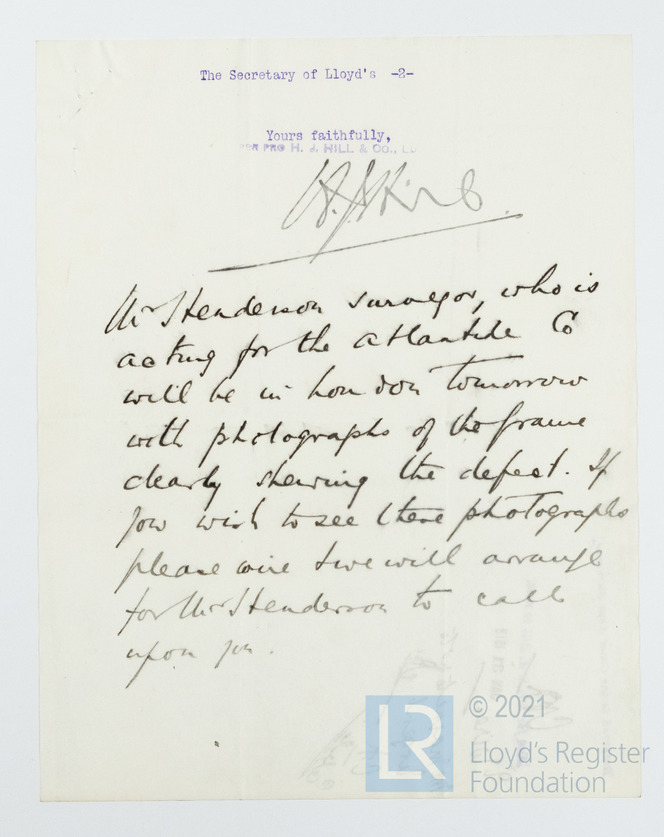 The Secretary of Lloyd's -2-
Yours faithfully,
PER PRO H. J. HILL & CO., L
Mr Henderson surveyor, who is
acting for the Atlantide Co
will be in London tomorrow
with photographs of the frame
clearly shewing the defect. If
you wish to see these photographs
please wire & we will arrange
for Mr Henderson to call
upon you.
LR
© 2021
Lloyd's Register
Foundation